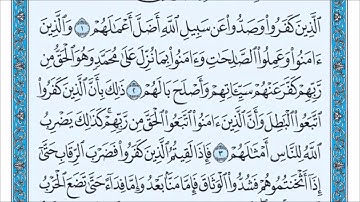 الَّذِينَ كَفَرُوا۟ وَصَدُّوا۟ عَن سَبِيلِ اللَّهِ أَضَلَّ أَعْمَٰلَهُمْ ١ وَالَّذِينَ
ءَامَنُوا۟ وَعَمِلُوا۟ الصَّٰلِحَٰتِ وَءَامَنُوا۟ بِمَا نُزِّلَ عَلَىٰ مُحَمَّدٍ وَهُوَ الْحَقُّ مِن
رَّبِّهِمْ كَفَّرَ عَنْهُمْ سَيِّـَٔاتِهِمْ وَأَصْلَحَ بَالَهُمْ ٢ ذَٰلِكَ بِأَنَّ الَّذِينَ كَفَرُوا۟
اتَّبَعُوا۟ الْبَٰطِلَ وَأَنَّ الَّذِينَ ءَامَنُوا۟ اتَّبَعُوا۟ الْحَقَّ مِن رَّبِّهِمْ كَذَٰلِكَ يَضْرِبُ
اللَّهُ لِلنَّاسِ أَمْثَٰلَهُمْ ٣ فَإِذَا لَقِيتُمُ الَّذِينَ كَفَرُوا۟ فَضَرْبَ الرِّقَابِ حَتَّىٰ
إِذَا أَثْخَنتُمُوهُمْ فَشُدُّوا۟ الْوَثَاقَ فَإِمَّا مَنًّا بَعْدُ وَإِمَّا فِدَآءً حَتَّىٰ تَضَعَ الْحَرْبُ